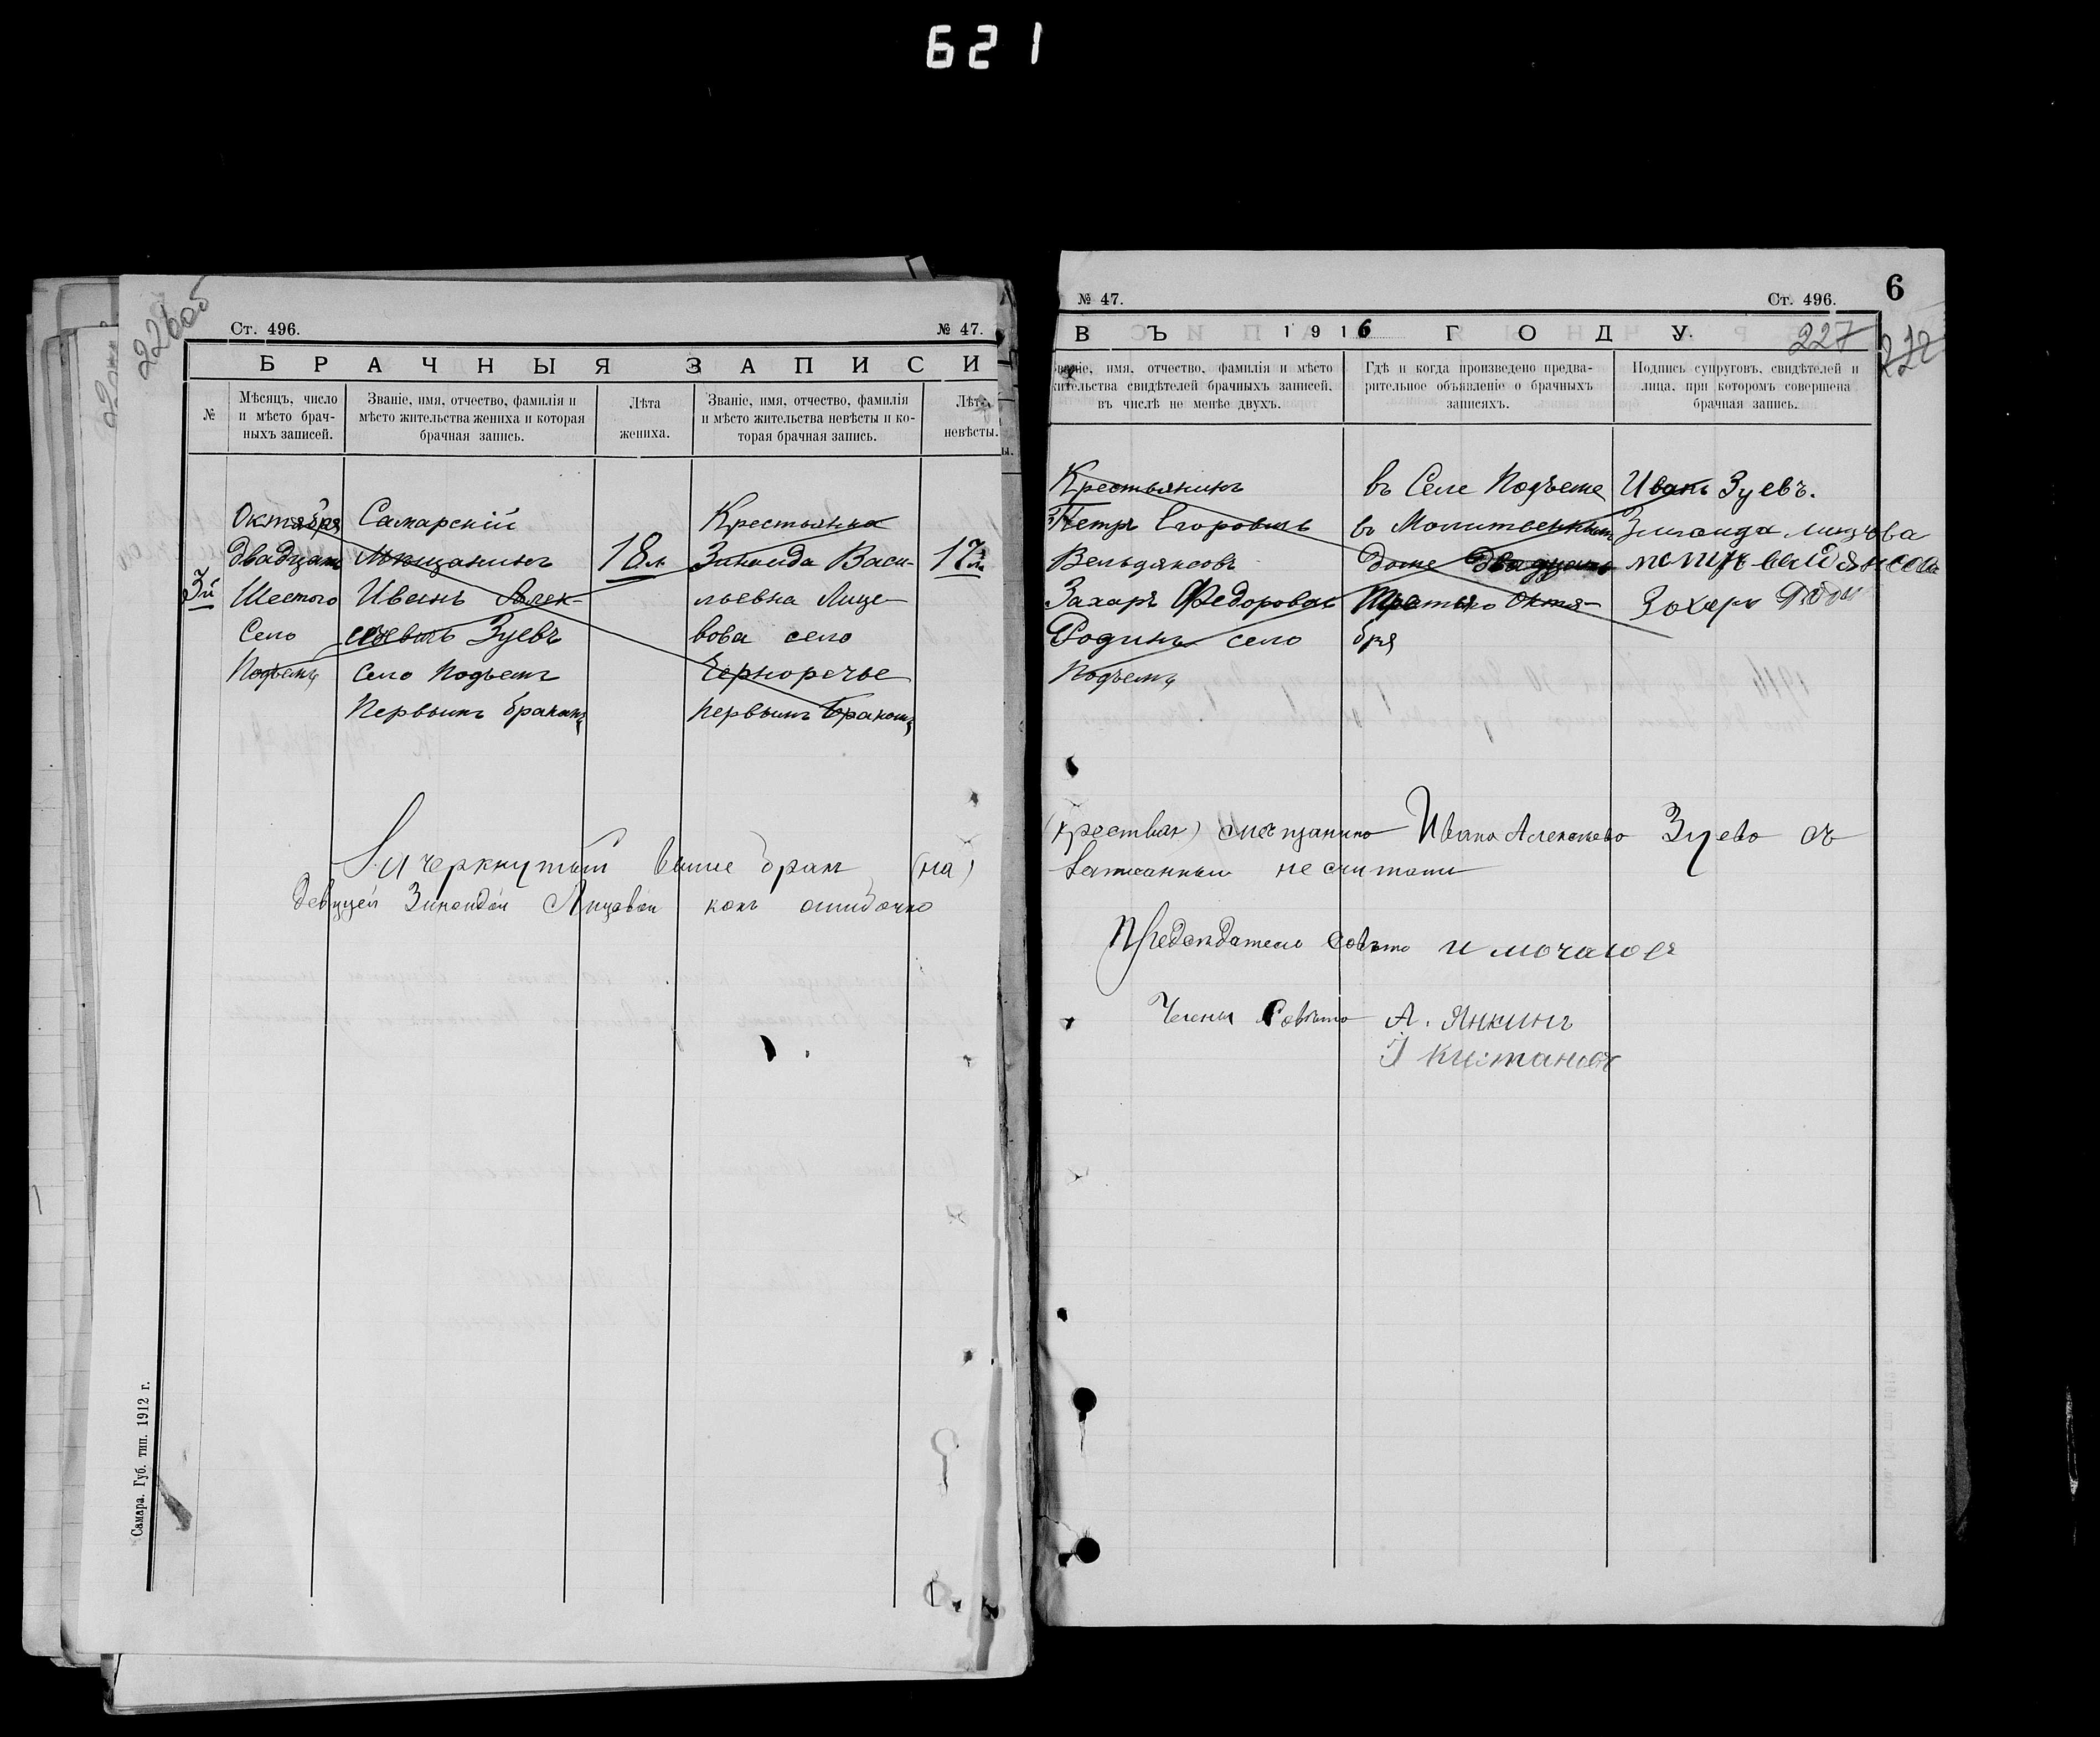 621
226об
Ст. 496.
№ 47.
БРАЧНЫЯ ЗАПИСИ
№
Мѣсяцъ, число
и мѣсто брач-
ныхъ записей.
Званіе, имя, отчество, фамилія и
мѣсто жительства жениха и которая
брачная запись.
Лѣта
жениха.
Званіе, имя, отчество, фамилія
и мѣсто жительства невѣсты и ко-
торая брачная запись.
Лѣта
невѣсты.
3й
Октября
двадцать
Шестого
Село
Подъемъ
Самарскій
Мѣщанинъ
Иванъ Алек-
Зуевъ
Село Подъемъ
Первымъ бракомъ
18 л.
Крестьянка
Зиноида Васи-
льевна Лице-
вова село
Черноречье
первымъ бракомъ
17 л.
Зачеркнутый выше бракъ
девицей Зиноидой Лицовой какъ ошибочно
Самара. Губ. тип. 1912 г.
№ 47.
Ст. 496.
6
ВЪ 1916 ГОДУ.
227
Званіе, имя, отчество, фамилія и мѣсто
жительства свидѣтелей брачныхъ записей,
въ числѣ не менѣе двухъ.
Гдѣ и когда произведено предва-
рительное объявленіе о брачныхъ
записяхъ.
Подпись супруговъ, свидѣтелей и
лица, при которомъ совершена
брачная запись.
Крестьянинъ
Петръ Егоровичъ
Вельдяксовъ
Захаръ Федоровъ
Родинъ село
Подъемъ
въ Селе Подъеме
въ Молитвенномъ
доме двадцать
Третьяго Октя-
бря
Иванъ Зуевъ.
Захаръ
мещанина Ивана Алексеева Зуева съ
не считать
Председатель Совета И Мочалов
Члены Совета А. Янкинъ
I Кистановъ